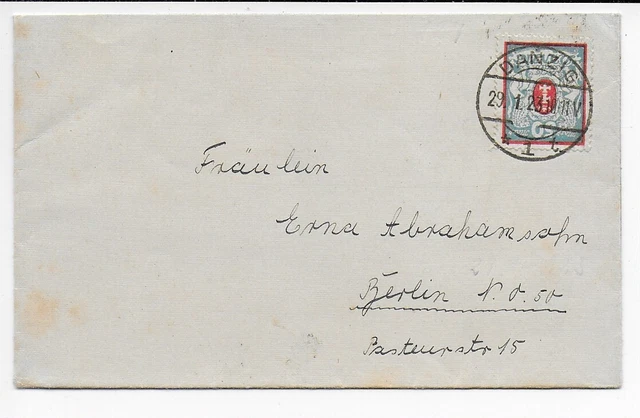 DANZIG
29. 1. 23. 10-11 V
* 1 t.
Fräulein
Erna Abrahamsohn
Berlin N. O. 50
Pasteurstr 15